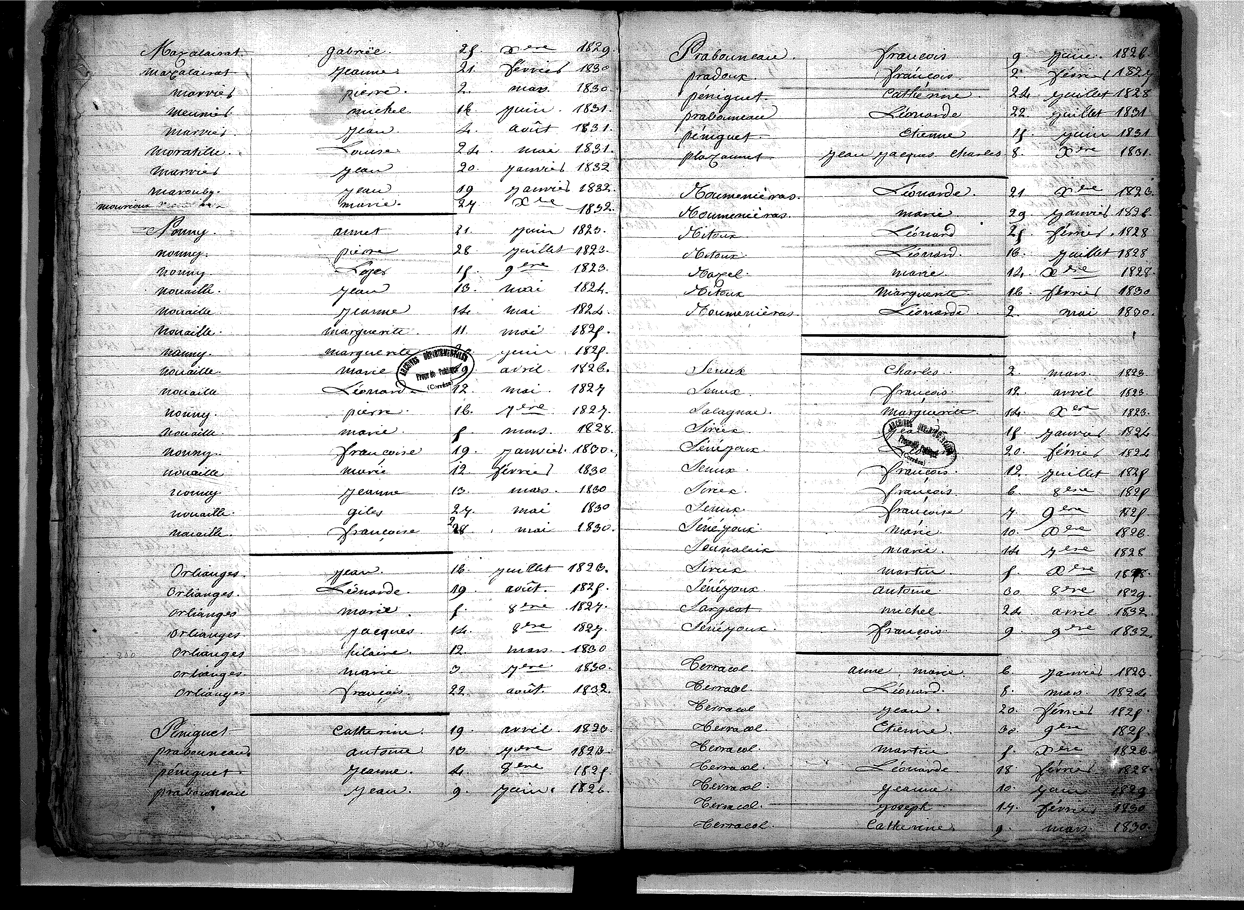 Mazalairat gabriel 25 Xbre 1829
mazalairat jeanne 21 février 1830
marviés pierre 2 mars 1830
meunier michel 16 juin 1831
marviés jean 4 août 1831
moratille Louise 24 mai 1831
marviés jean 20 janvier 1832
marouby jean 19 janvier 1832
marie 27 Xbre 1832
Nouny annet 21 juin 1823
nouny pierre 28 juillet 1823
nouny 15 9bre 1823
nouaille jean 13 mai 1824
nouaille jeanne 14 mai 1824
nouaille marguerite 11 mai 1825
nouny marguerite juin 1825
nouaille marie 9 avril 1826
nouaille Léonard 12 mai 1827
nouny pierre 16 7bre 1827
nouaille marie 5 mars 1828
nouny françoise 19 janvier 1830
nouaille marie 12 février 1830
nouny jeanne 13 mars 1830
nouaille giles 27 mai 1830
nouaille françoise 28 mai 1830
Orlianges jean 16 juillet 1823
orlianges Léonarde 19 août 1825
orlianges marie 5 8bre 1827
orlianges jacques 14 8bre 1827
orlianges hilaire 12 mars 1830
orlianges marie 3 7bre 1830
orlianges françois 22 août 1832
Péniguet Catherine 19 avril 1823
prabouneau antoine 10 9bre 1823
péniguet jeanne 4 8bre 1825
prabouneau jean 9 juin 1826
ARCHIVES DÉPARTEMENTALES
(Corrèze)
Prabouneau françois 9 juin 1826
pradoux françois 2 février 1827
péniguet Catherine 24 juillet 1828
prabouneau Léonarde 22 juillet 1831
péniguet Etienne 15 juin 1831
plazanet jean jacques charles 8 Xbre 1831
Roumeniéras Léonarde 21 Xbre 1823
Roumeniéras marie 29 janvier 1826
Ritoux Léonard 25 février 1828
Ritoux Léonard 13 juillet 1828
marie 14 Xbre 1828
Ritoux marguerite 16 février 1830
Roumeniéras Léonarde 2 mai 1830
Seniix Charles 2 mars 1823
françois 12 avril 1823
Salagnac marguerite 14 Xbre 1823
Sirieix 15 janvier 1824
Sénéjoux 20 février 1824
françois 12 juillet 1825
Sirieix françois 6 8bre 1825
françoise 7 9bre 1825
Sénéjoux marie 10 Xbre 1826
marie 14 7bre 1828
Sirieix martin 5 Xbre 1828
Sénéjoux antoine 30 8bre 1829
Sargeat michel 24 avril 1832
Sénéjoux françois 9 9bre 1832
Terracol anne marie 6 janvier 1823
Terracol Léonard 8 mars 1824
Terracol jean 20 février 1825
Terracol Etienne 30 9bre 1825
Terracol martin 5 Xbre 1826
Terracol Léonarde 18 février 1828
Terracol jeanne 10 juin 1829
Terracol joseph 17 février 1830
Terracol Catherine 9 mars 1830